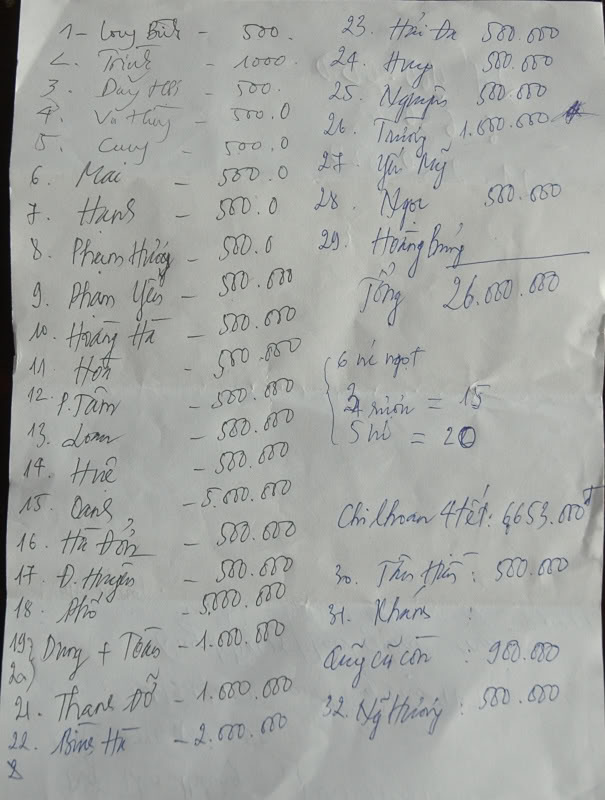 1 - Long Bình - 500.
2. Trình - 1000.
3. Dây Hối - 500.
4. Vũ Thủy - 500.0
5. Cung - 500.0
6. Mai - 500.0
7. Hạnh - 500.0
8. Phạm Hường - 500.0
9. Phạm Yến - 500.000
10. Hoàng Hà - 500.000
11. Hòa 500.000
12. P. Tâm - 500.000
13. Loan - 500.000
14. Huê - 500.000
15. Oanh - 5.000.000
16. Hà Đốn - 500.000
17. Đ. Huyền - 500.000
18. Phố - 5000.000
19) Dung + Toàn - 1.000.000
20)
21. Thanh Đỗ - 1.000.000
22. Bình Hà - 2.000.000
23. Hải Đa 500.000
24. Huy 500.000
25. Nguyên 500.000
26. Trường 1.000.000
27. Yến Mỹ
28. Ngọc 500.000
29. Hoàng
Tổng 26.000.000
6 nc ngọt
món = 15
5 = 20
Chi khoản 4 tết: 6,653.000đ
30. Thu Hiền : 500.000
31. Khánh :
Quỹ cũ còn : 900.000
32. Ng Hường : 500.000